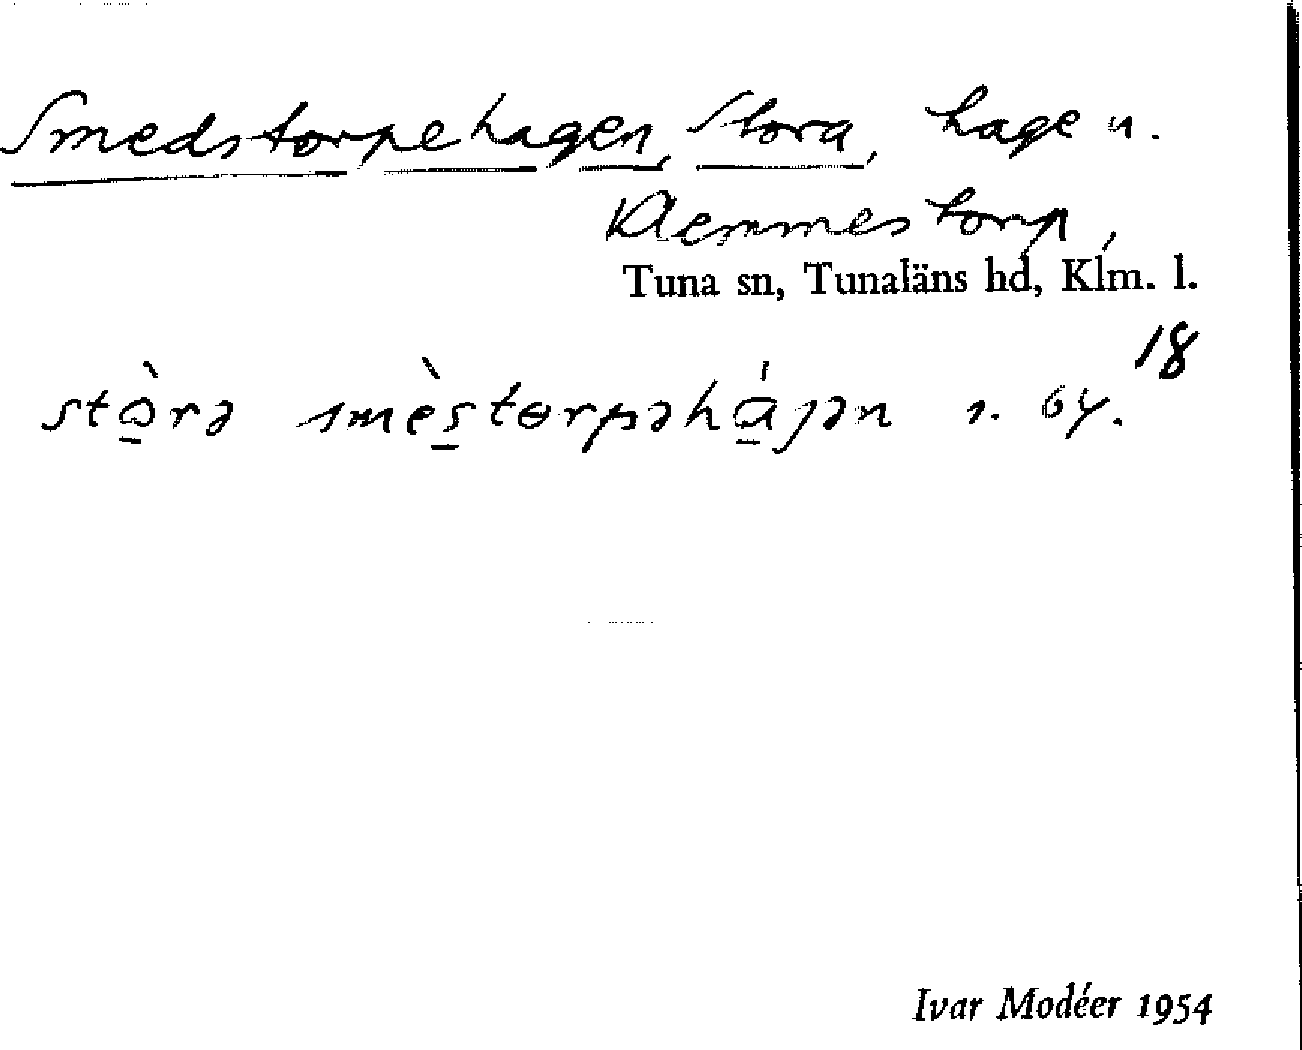 Smedstorpehagen, Stora, hage u.
Klemmestorp,
Tuna sn, Tunaläns hd, Klm. l.
18
stò̱rə smès̱tɵrpəhá̱jən s. 64.
Ivar Modéer 1954